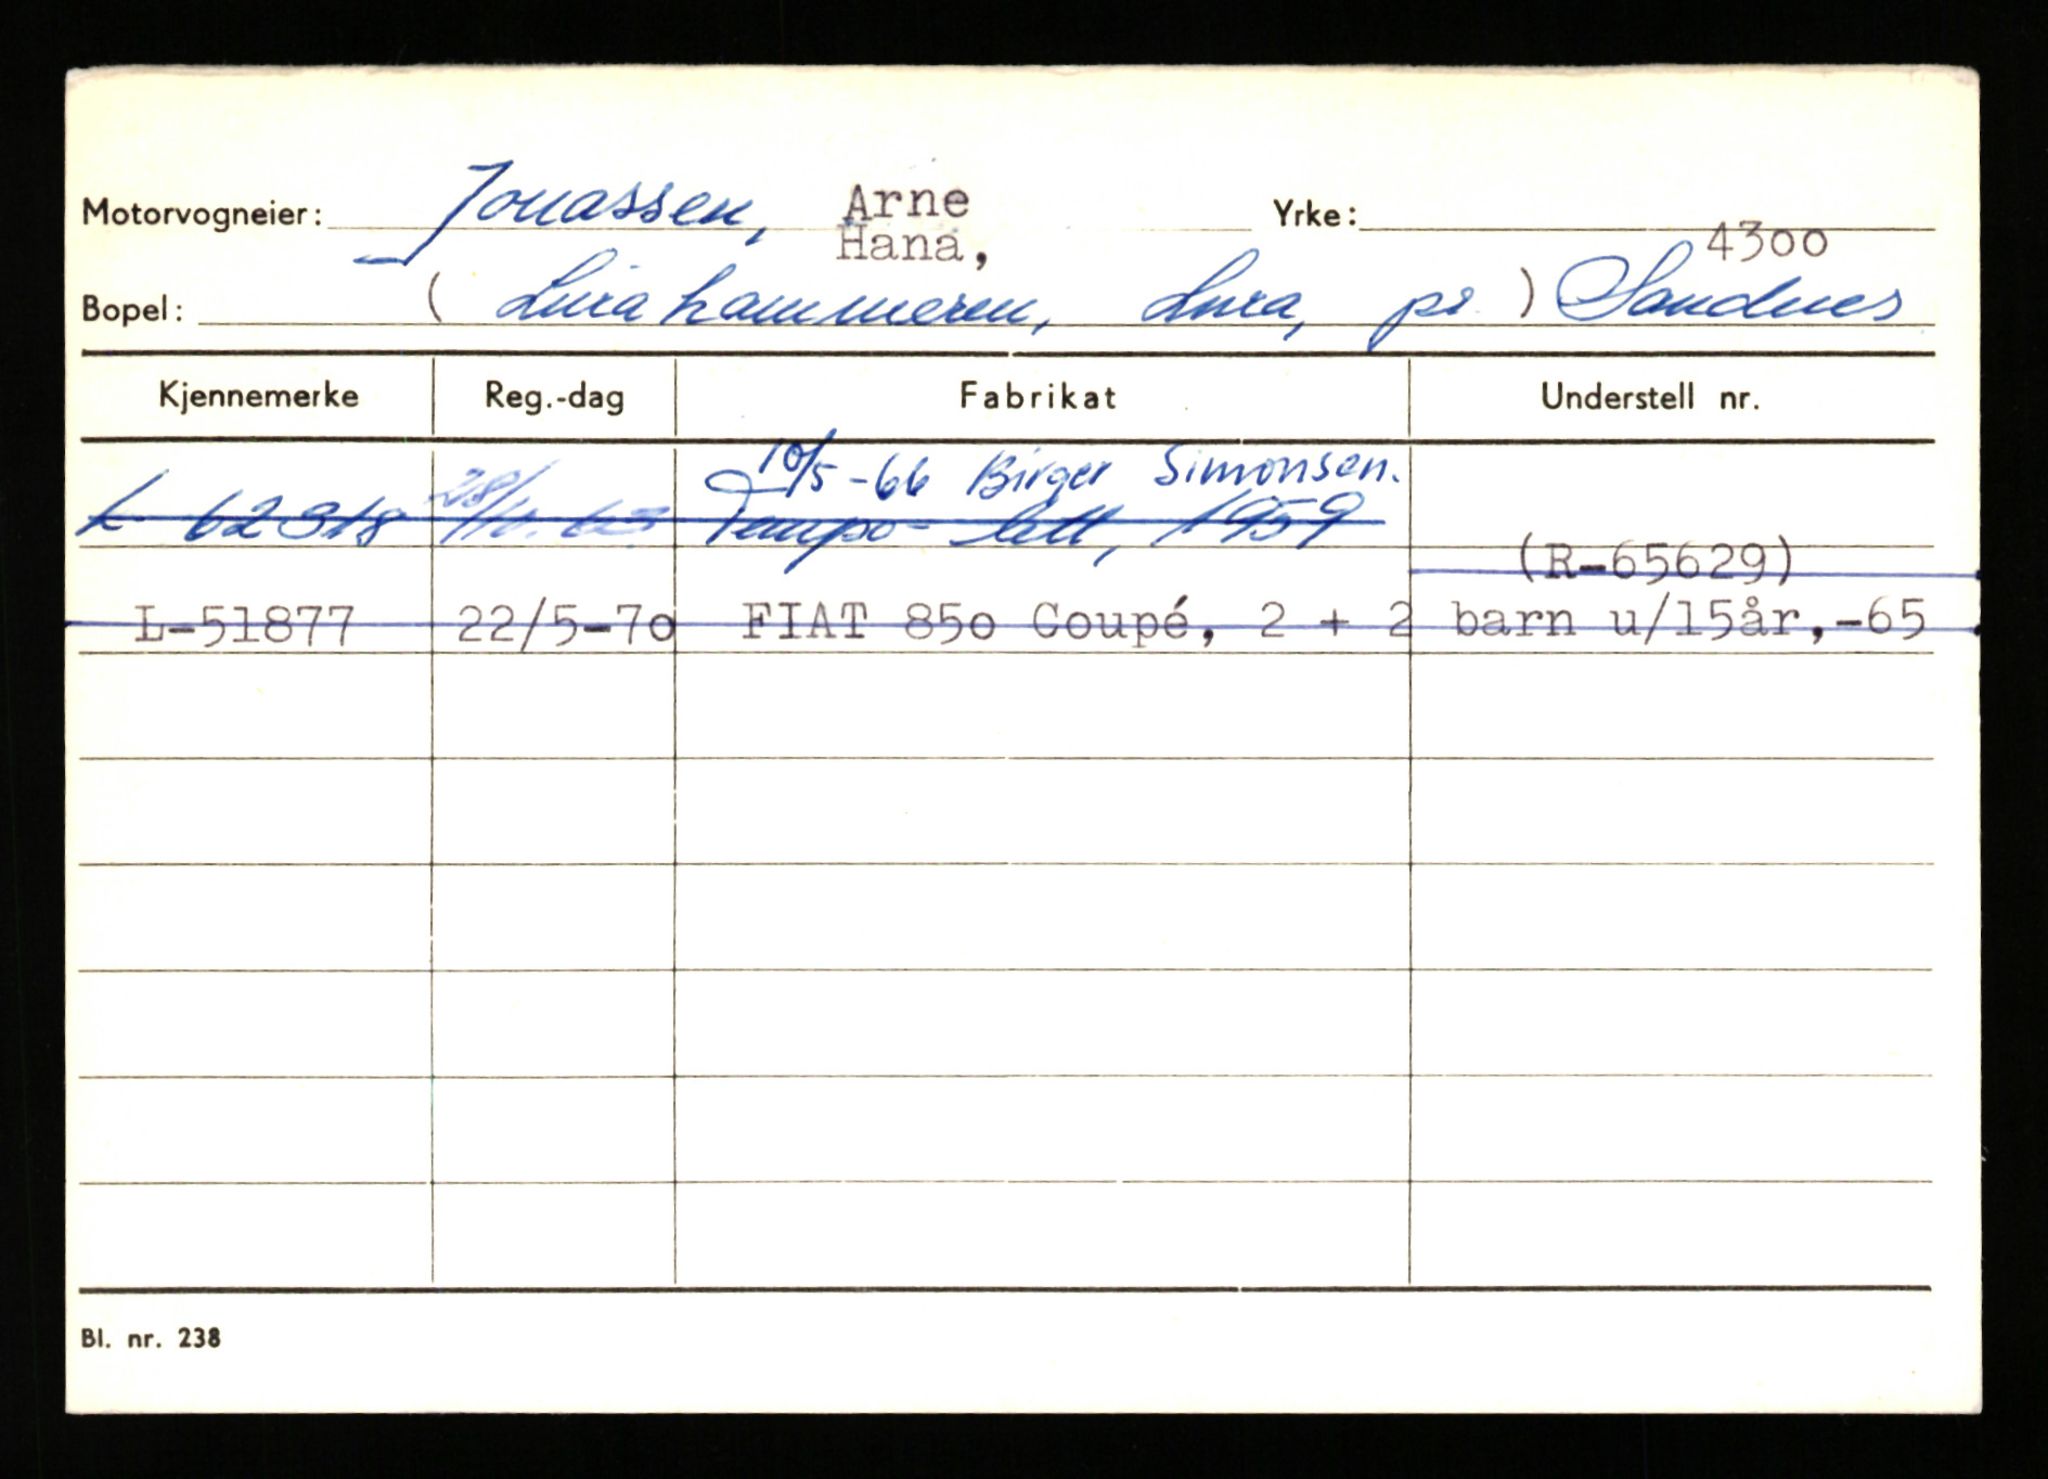 Motorvogneier: Jonassen, Arne Yrke:
Hana, 4300
Bopel: ( Lurahammeren, Lura, pr. ) Sandnes
Kjennemerke Reg.-dag Fabrikat Understell nr.
10/5-66 Birger Simonsen.
L 62318 28/ Tempo-lett, 1959
(R-65629)
L-51877 22/5-70 FIAT 850 Coupé, 2 + 2 barn u/15år,-65
Bl. nr. 238